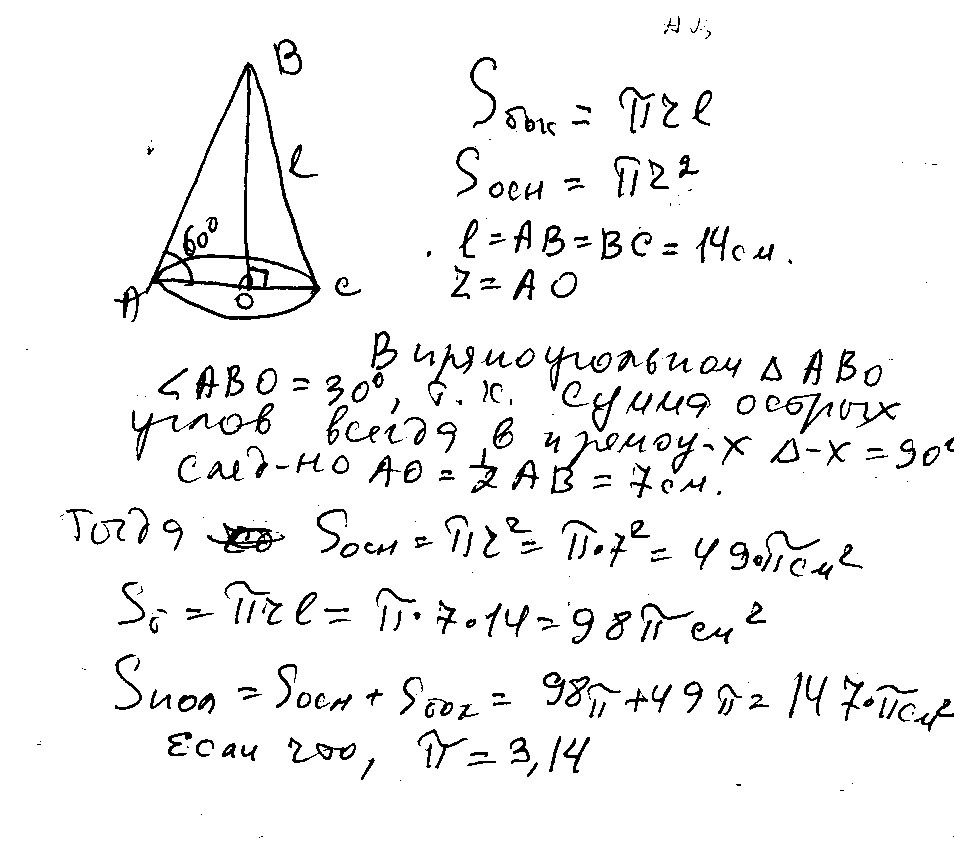 B
l
60°
A
O
C
Sбок = πrl
Sосн = πr²
l = AB = BC = 14см.
r = AO
В прямоугольном Δ ABO
∠ABO = 30°, т.к. сумма острых
углов всегда в прямоу-х Δ-х = 90°
след-но AO = 1/2 AB = 7см.
Тогда Sосн = πr² = π·7² = 49·πсм²
Sб = πrl = π·7·14 = 98π см²
Sпол = Sосн + Sбок = 98π + 49π = 147·πсм²
Если что, π = 3,14